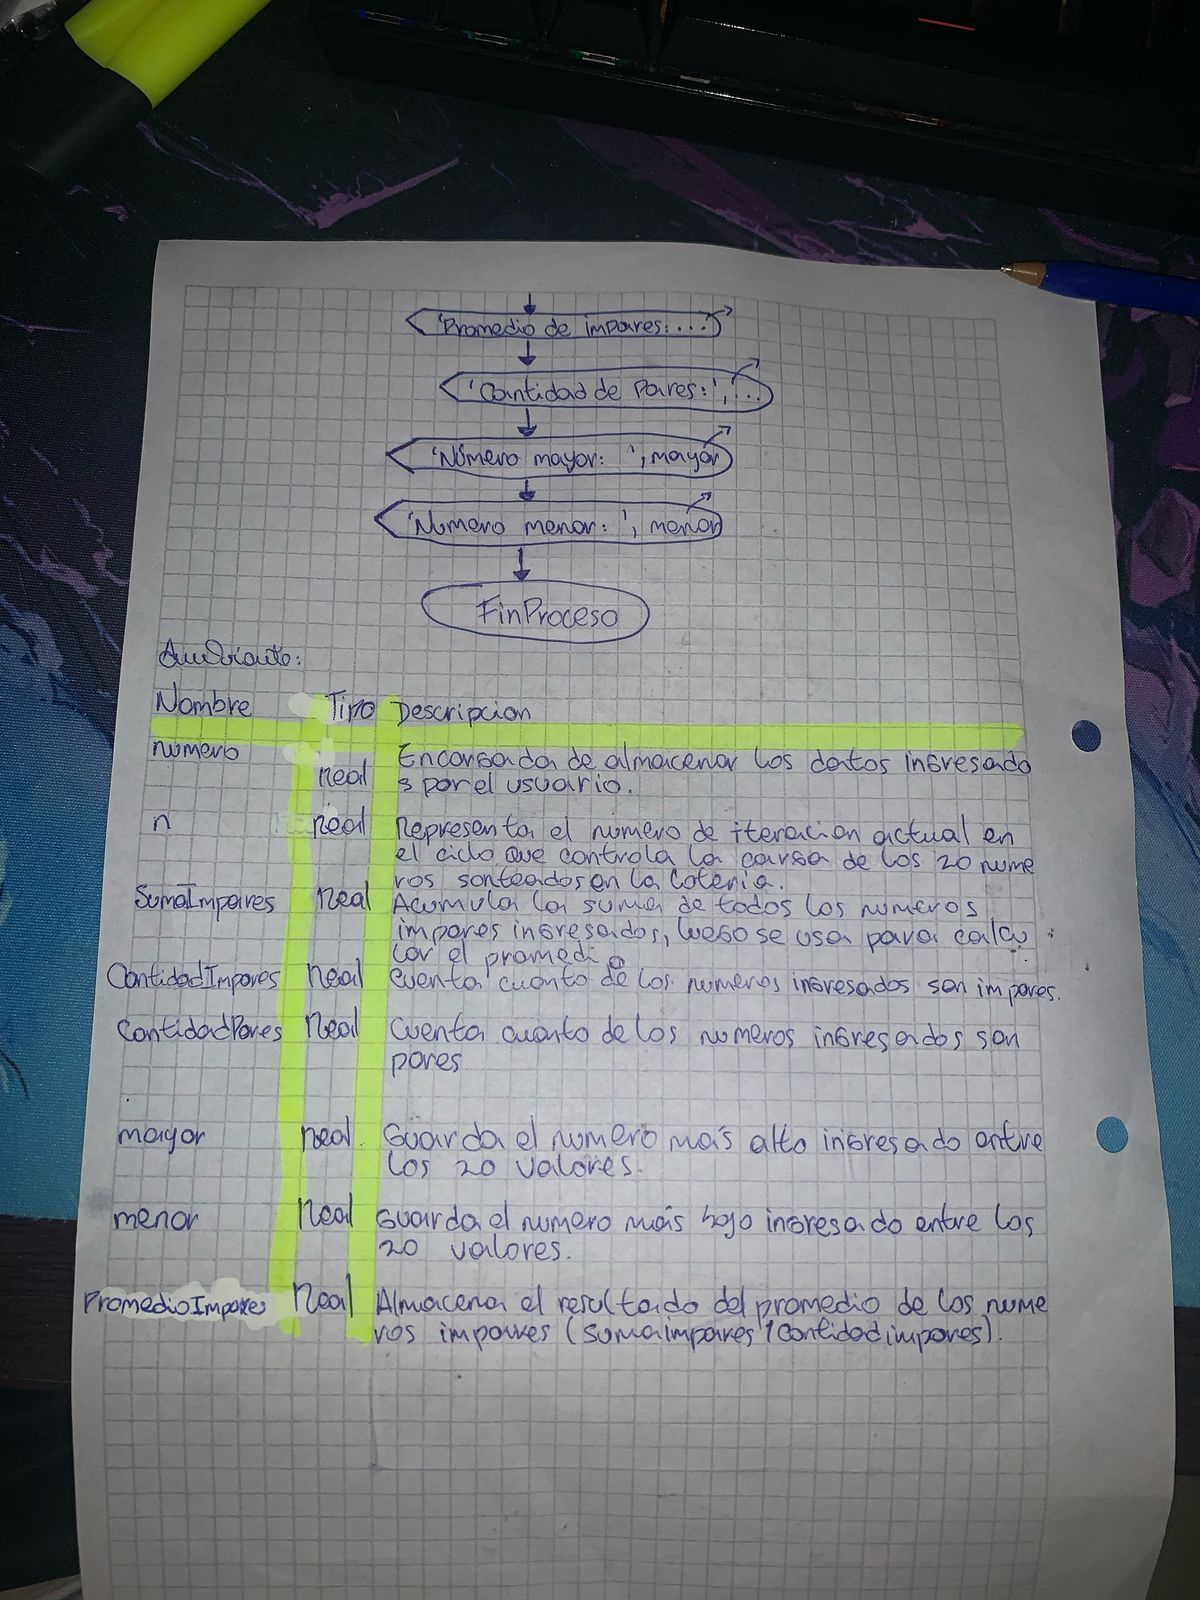 'Promedio de impares:...
'Cantidad de Pares:',...
'Número mayor: ', mayor
'Numero menor: ', menor
FinProceso
Nombre Tipo Descripcion
numero real Encargada de almacenar los datos ingresado
s por el usuario.
n real Representa el numero de iteracion actual en
el ciclo que controla la carga de los 20 nume
ros sorteados en la loteria.
SumaImpares Real Acumula la suma de todos los numeros
impares ingresados, luego se usa para calcu
lar el promedio
CantidadImpares Real Cuenta cuanto de los numeros ingresados son impares.
CantidadPares Real Cuenta cuanto de los numeros ingresados son
pares
mayor real. Guarda el numero más alto ingresado entre
los 20 valores.
menor Real Guarda el numero más bajo ingresado entre los
20 valores.
PromedioImpares Real Almacena el resultado del promedio de los nume
ros impares (sumaimpares / Cantidadimpares).